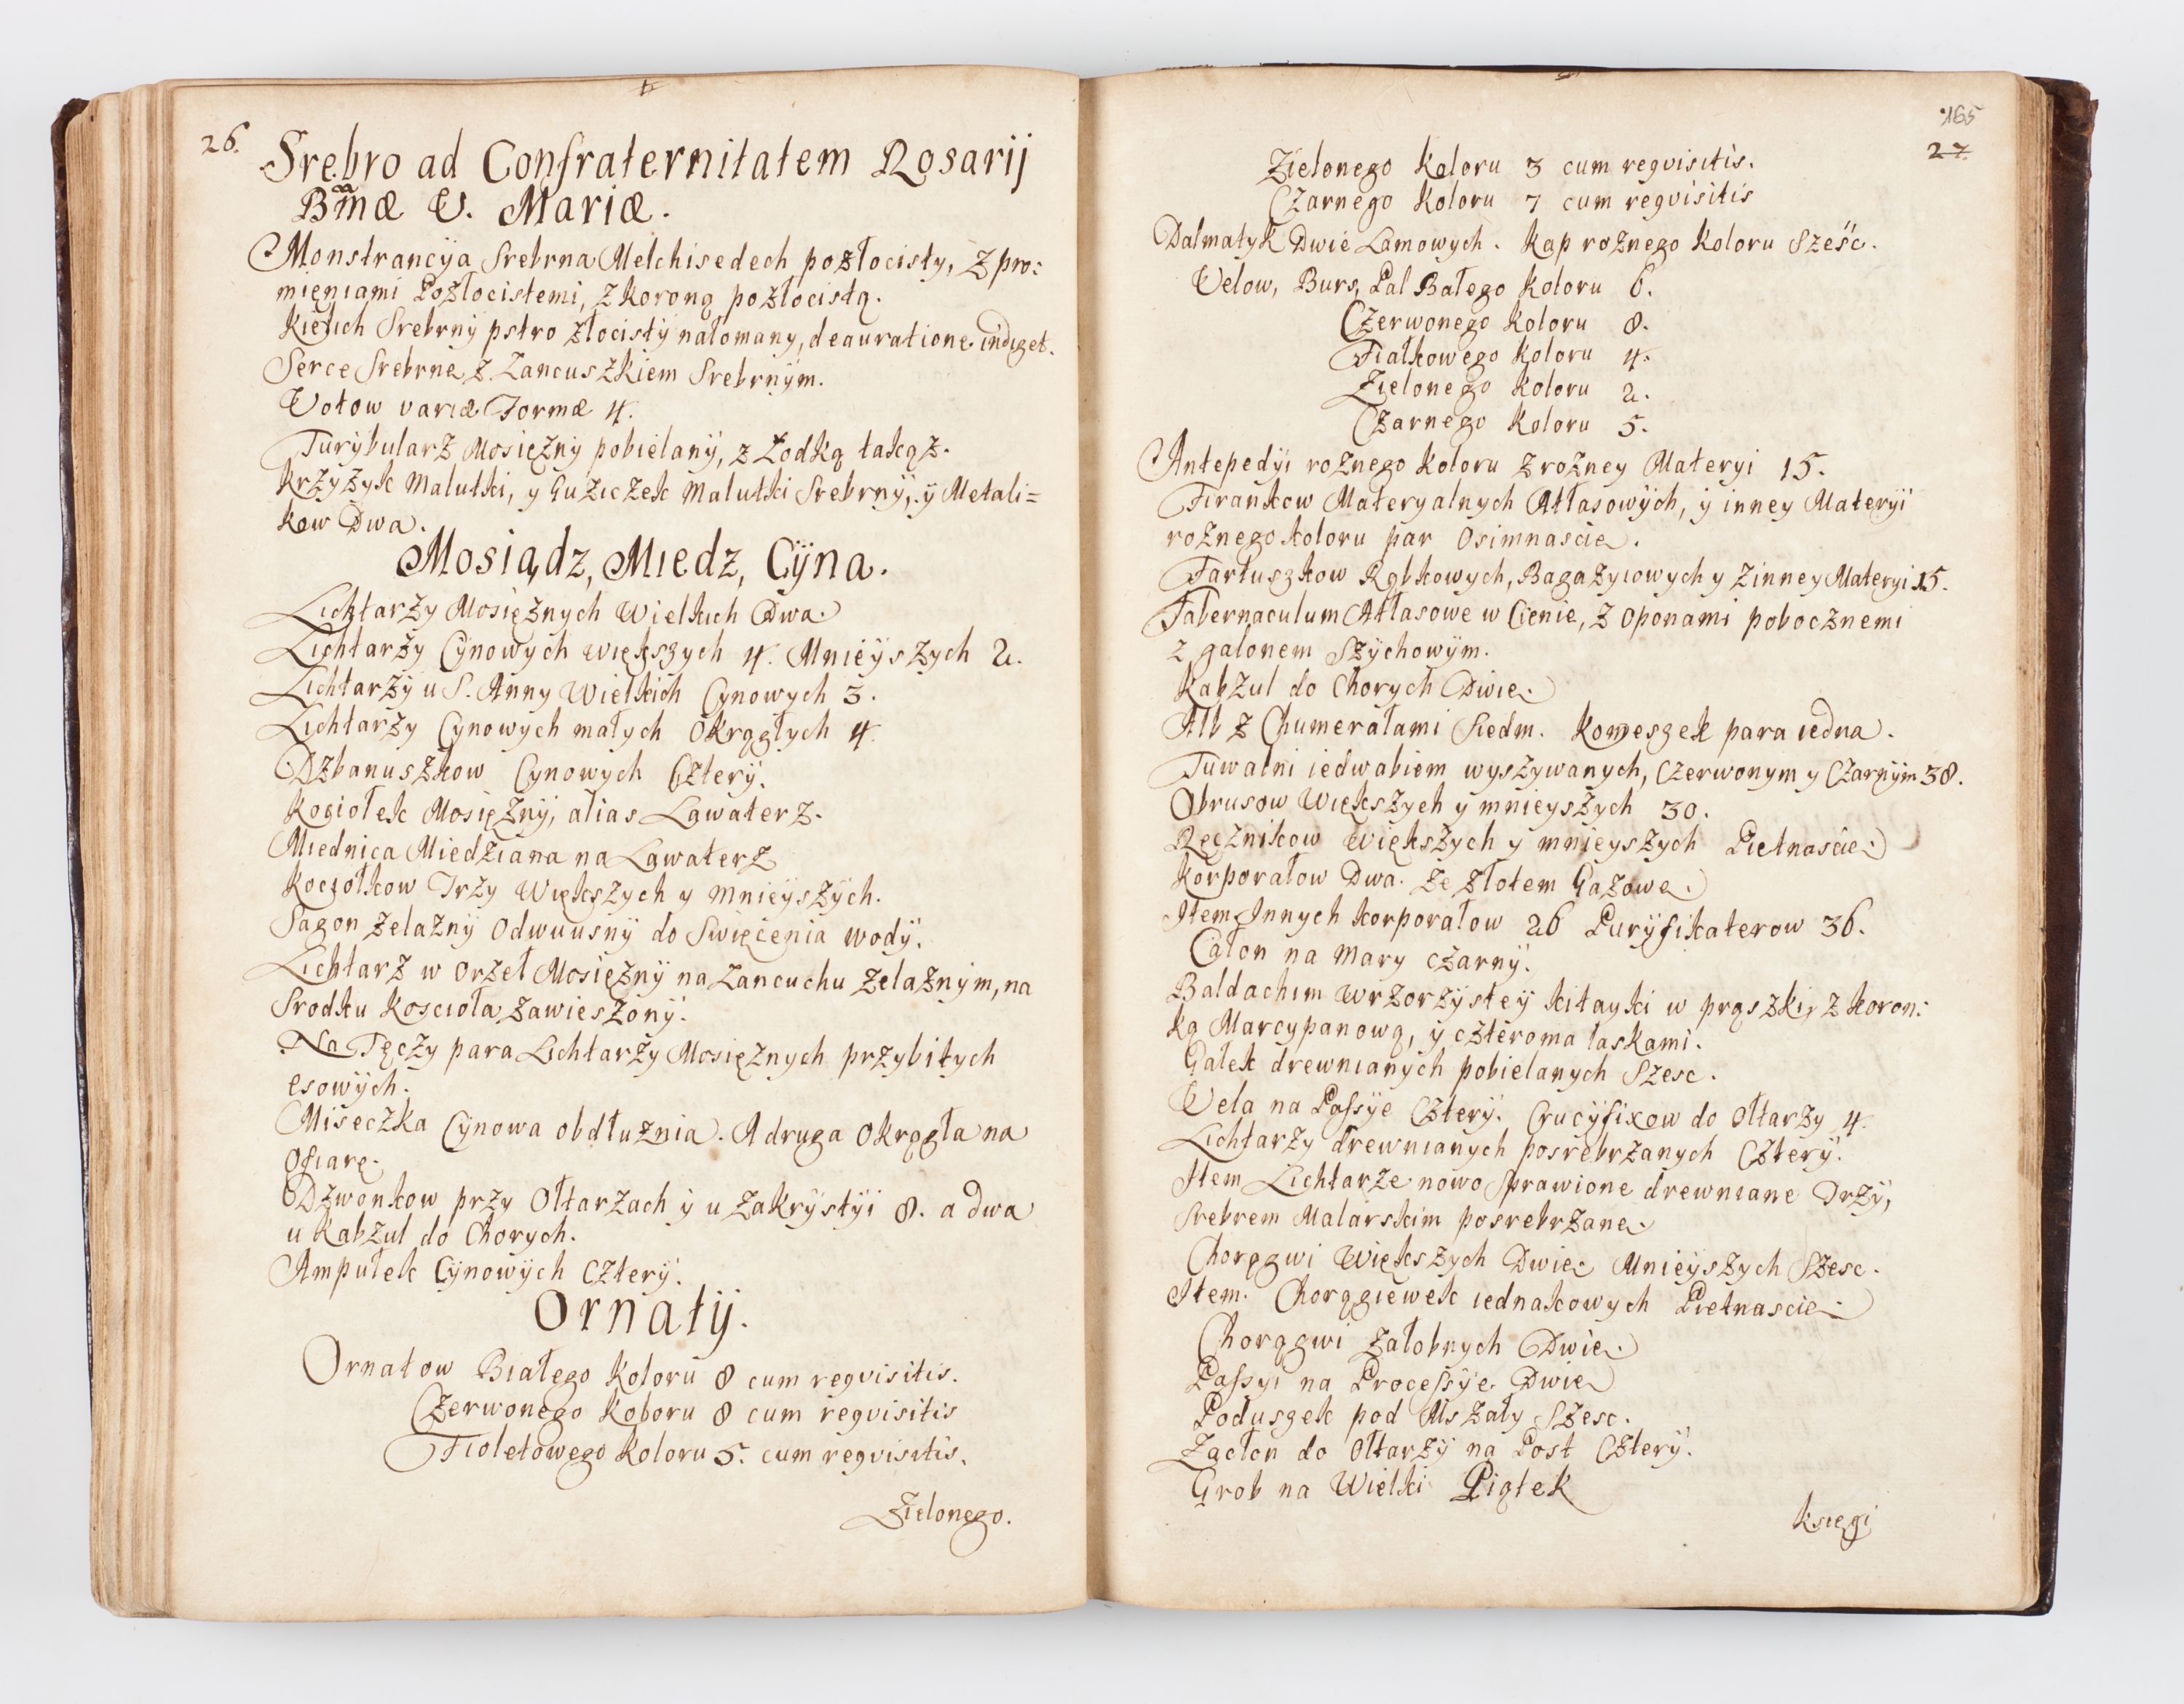 26.
Srebro ad Confraternitatem Rosarij
Bmæ V. Mariæ.
Monstrancÿa Srebrna Melchisedech pozłocisty, z pro:
mięniami Pozłocistemi, z koroną pozłocistą.
Kielich Srebrnÿ pstro złocistÿ nałomany, deauratione indiget.
Serce Srebrne z Łancuszkiem Srebrnÿm.
Votow variæ Formæ 4.
Turÿbularz Mosiężnÿ pobielanÿ, z Łodką takąż.
Krzyżyk Malutki, y Guziczek Malutki Srebrnÿ, ÿ Metali=
kow Dwa.
Mosiądz, Miedz, Cÿna.
Lichtarży Mosiężnych Wielkich Dwa.
Lichtarży Cÿnowÿch większych 4. Mnieÿszÿch 2.
Lichtarżÿ u S. Anny Wielkich Cÿnowych 3.
Lichtarży Cynowych małych Okrągłych 4.
Dzbanuszkow Cynowych Czterÿ.
Kociołek Mosiężnÿ, alias Lawaterz.
Miednica Miedziana na Lawaterz
Kociołkow Trzy Większych y Mnieyszÿch.
Sagon żelaznÿ Odwuusnÿ do Swięcenia wodÿ.
Lichtarz w Orzeł Mosiężnÿ na Łancuchu żelaznÿm, na
Srodku Koscioła zawieszonÿ.
Na Tęczy para Lichtarży Mosiężnych przybitych
esowÿch.
Miseczka Cÿnowa obdłużnia. A druga Okrągła na
Ofiarę.
Dzwonkow przy Ołtarzach ÿ u Zakrÿstÿi 8. a dwa
u Kabzul do Chorych.
Ampułek Cÿnowÿch Czterÿ.
Ornatÿ.
Ornatow Białego Koloru 8 cum reqvisitis.
Czerwonego Koloru 8 cum reqvisitis
Fioletowego Koloru 5. cum reqvisitis.
Zielonego.
165
27.
Zielonego Koloru 3 cum reqvisitis.
Czarnego Koloru 7 cum reqvisitis
Dalmatyk Dwie Lamowych. Kap rożnego Koloru Sześc.
Velow, Burs, Pal Białego Koloru 6.
Czerwonego Koloru 8.
Fiałkowego Koloru 4.
Zielonego Koloru 2.
Czarnego Koloru 5.
Antepedÿi rożnego Koloru z rożney Materyi 15.
Firankow Materyalnych Atłasowÿch, ÿ inney Materyi
rożnego koloru par Osimnaście.
Fartuszkow Rąbkowych, Bagazyiowych y z inney Materyi 15.
Tabernaculum Atłasowe w Cienie, z Oponami pobocznemi
z galonem Szÿchowÿm.
Kabzul do Chorych Dwie.
Alb z Chumerałami Siedm. Komeszek para iedna.
Tuwalni iedwabiem wyszywanych, Czerwonym y Czarnÿm 38.
Obrusow Większych y mnieyszych 30.
Ręcznikow Większych y mnieyszych Pietnaście.
Korporałow Dwa. ze złotem Gazowe.
Item Innych korporałow 26 Purÿfikaterow 36.
Całon na Mary czarnÿ.
Baldachim wżorzÿsteÿ kitayki w prąszki, z koron:
ką Marcypanową, ÿ czteroma laskami.
Gałek drewnianych pobielanych Szesc.
Vela na Passÿe Czterÿ. Crucÿfixow do Ołtarzy 4.
Lichtarży drewnianych posrebrzanych Czterÿ.
Item Lichtarze nowo Sprawione drewniane Trzÿ,
Srebrem Malarskim posrebrzane.
Chorągwi Większych Dwie. Mnieÿszych Szesc.
Item. Chorągiewek iednakowych Pietnascie.
Chorągwi żałobnych Dwie.
Passyi na Processÿe Dwie
Poduszek pod Mszały Szesc.
Zacłon do Ołtarzÿ na Post Czterÿ.
Grob na Wielki Piątek
księgi